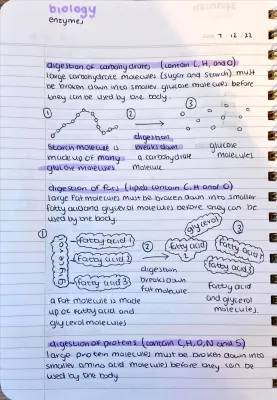 biology
enzymes
7 · 12 · 22
digestion of carbohydrates (contain C, H, and O)
large carbohydrate molecules (sugar and starch) must
be broken down into smaller glucose molecules before
they can be used by the body.
① ② ③
starch molecule is
made up of many
glucose molecules
digestion
breaks down
a carbohydrate
molecule
glucose
molecules
digestion of fats (lipids contain C, H and O)
large fat molecules must be broken down into smaller
fatty acid and glycerol molecules before they can be
used by the body
①
glycerol
fatty acid 1
fatty acid 2
fatty acid 3
a fat molecule is made
up of fatty acid and
glycerol molecules
②
digestion
breaks down
fat molecule
③
glycerol
fatty acid
fatty acid
fatty acid 3
fatty acid
and glycerol
molecules
digestion of proteins (contain C, H, O, N and S)
large protein molecules must be broken down into
smaller amino acid molecules before they can be
used by the body